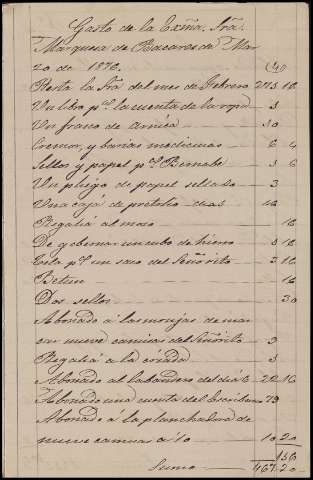 Gasto de la Exma. Sra.
Marquesa de Bacares de Mar
zo de 1876.
Resta la Sra del mes de Febrero 213 16
Un libro pa. la cuenta de la ropa 3
Un frasco de arnica 30
Cremor, y barias medicinas 6 4
Sellos y papel pa. Bernabe 3 6
Un pliego de papel sellado 3
Una caja de 16
Regalia al moso 16
De gobernar un cubo de hierro 3 16
Tela pa. un saco del Señorito 3 16
Betun 16
Dos sellos 30
Abonado á las monjas de mar
nueve camisas del Señorito 9
Regalia á la criada 3
Abonado al labandero del dia 6 22 16
Abonado una cuenta del Escribano 79
Abonado á la planchadora de
nueve camisas a 10 2
Suma 467.20